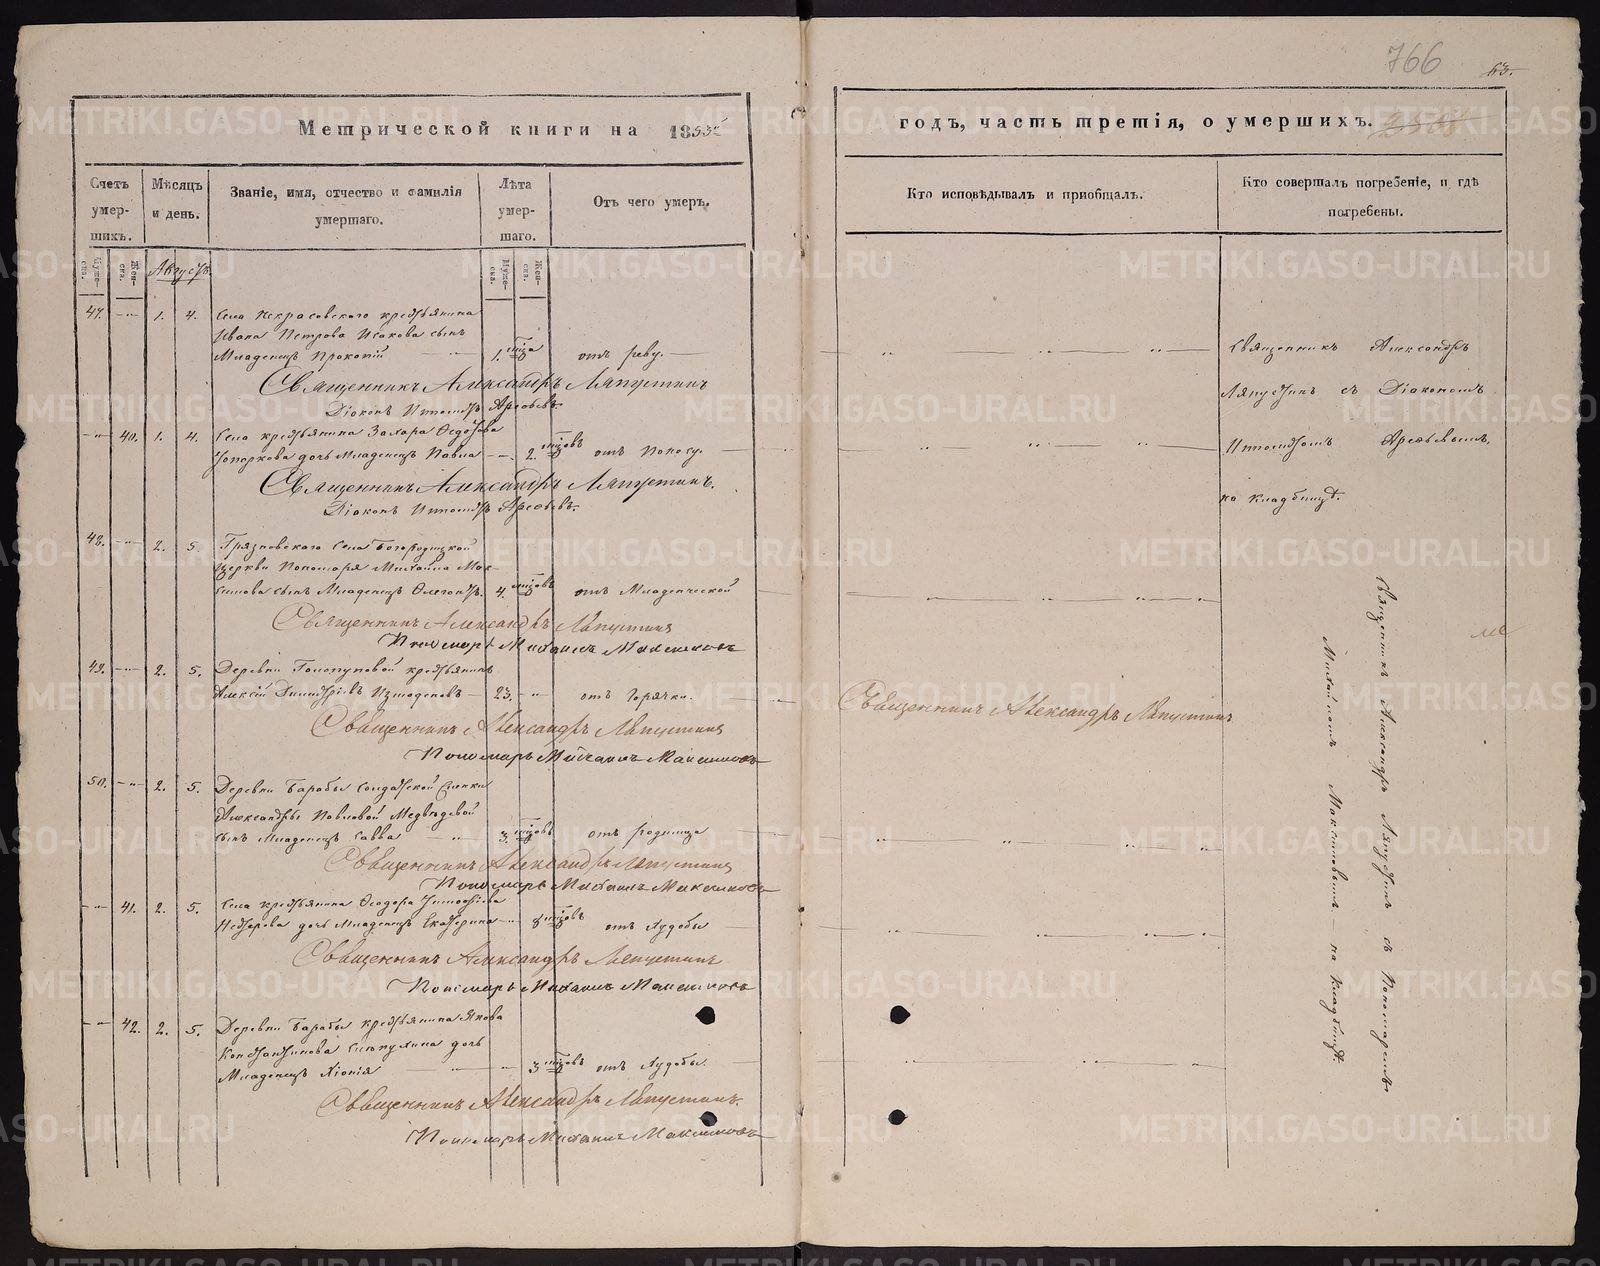 766
63.
Метрической книги на 1855
годъ, часть третія, о умершихъ.
Счетъ умер-шихъ.
Мѣсяцъ и день.
Званіе, имя, отчество и фамилія умершаго.
Лѣта умер-шаго.
Отъ чего умеръ.
Кто исповѣдывалъ и приобщалъ.
Кто совершалъ погребеніе, и гдѣ погребены.
Муже-ска.
Жен-ска.
Августъ.
Муже-ска.
Жен-ска.
47. 1. 4. Села Некрасовского крестьянина
Ивана Петрова Исакова сынъ
Младенецъ Прокопій 1. мца отъ реву.
Священникъ Александръ Ляпустинъ
Діаконъ Арефьевъ.
40. 1. 4. Села крестьянина Захара Федотова
Топоркова дочь Младенецъ Павла 2. мцовъ отъ Поносу.
Священникъ Александръ Ляпустинъ.
Діаконъ Арефьевъ.
48. 2. 5. Грязновского Села Богородицкой
церкви Пономаря Михаила Мак-
симова сынъ Младенецъ 4. мцовъ отъ Младенческой
Священникъ Александръ Ляпустинъ
Пономарь Михаилъ Максимовъ
49. 2. 5. Деревни крестьянинъ
Алексій Димитріевъ Измоденовъ 23. отъ Горячки.
Священникъ Александръ Ляпустинъ
Пономарь Михаилъ Максимовъ
50. 2. 5. Деревни Барабы Солдатской Женки
Александры Павловой Медвѣдевой
сынъ Младенецъ Савва 3. мцовъ отъ родимца
Священникъ Александръ Ляпустинъ
Пономарь Михаилъ Максимовъ
41. 2. 5. Села крестьянина Феодора Тимофеева
дочь Младенецъ Екатерина 8 мцовъ отъ Худобы
Священникъ Александръ Ляпустинъ
Пономарь Михаилъ Максимовъ
42. 2. 5. Деревни Барабы крестьянина Якова
Константинова дочь
Младенецъ Хіонія 3 мцовъ отъ Худобы.
Священникъ Александръ Ляпустинъ.
Пономарь Михаилъ Максимовъ
Священникъ Александръ
Ляпустинъ съ Діакономъ
Арефьевымъ,
на кладбищѣ.
Священникъ Александръ Ляпустинъ
Священникъ Александръ Ляпустинъ съ Пономаремъ
Михаиломъ Максимовымъ на Кладбищѣ.
METRIKI.GASO-URAL.RU